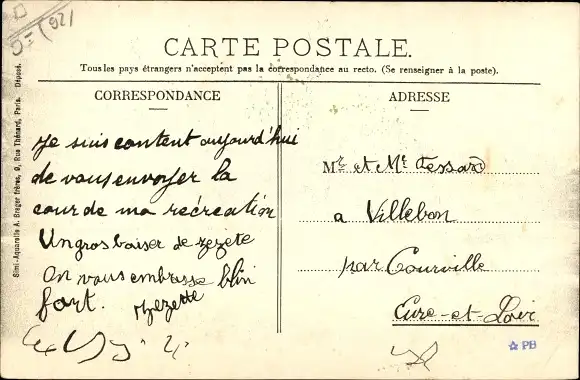 CARTE POSTALE.
Tous les pays étrangers n'acceptent pas la correspondance au recto. (Se renseigner à la poste).
CORRESPONDANCE
Je suis content aujourd'hui
de vous envoyer la
cour de ma récréation
Un gros baiser de zezete
On vous embrasse blin
fort.
ADRESSE
Mr et Me Tessard
a Villebon
par Courville
Eure-et-Loir
PB
Simi-Aquarelle A. Breger frères, 9, Rue Thénard, Paris. Déposé.